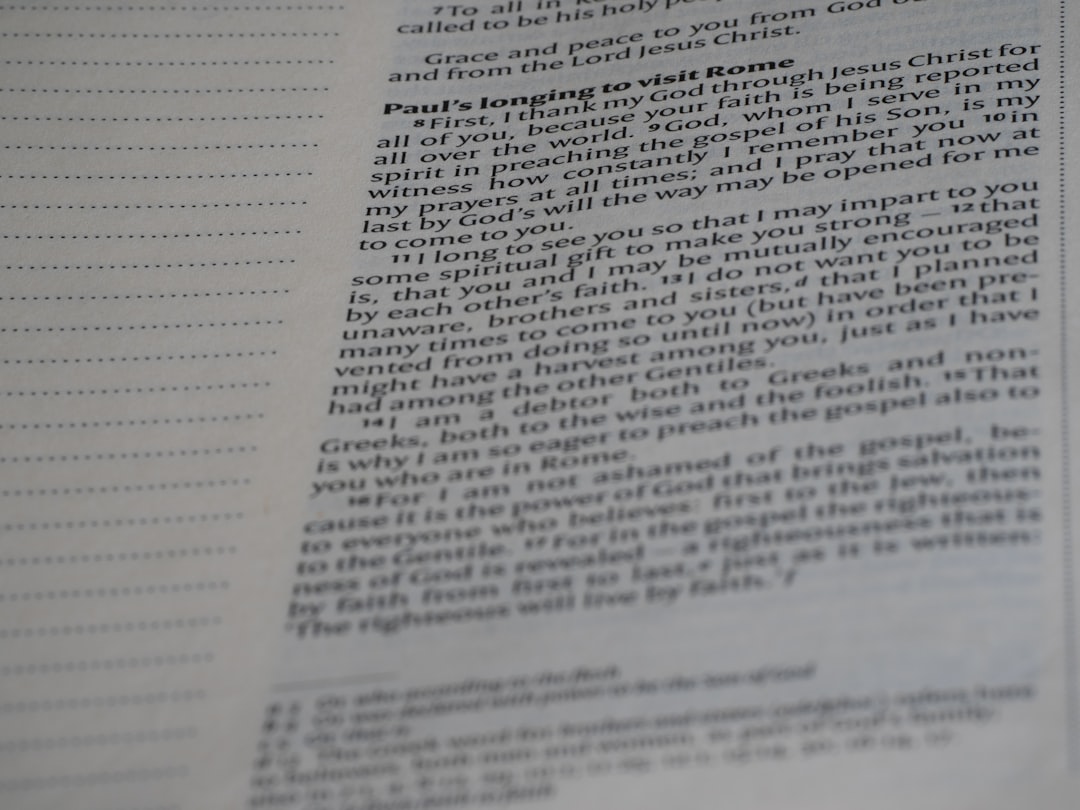 7To all in
called to be his holy
Grace and peace to you from God
and from the Lord Jesus Christ.
Paul's longing to visit Rome
8First, I thank my God through Jesus Christ for
all of you, because your faith is being reported
all over the world. 9God, whom I serve in my
spirit in preaching the gospel of his Son, is my
witness how constantly I remember you 10in
my prayers at all times; and I pray that now at
last by God's will the way may be opened for me
to come to you.
11I long to see you so that I may impart to you
some spiritual gift to make you strong – 12that
is, that you and I may be mutually encouraged
by each other's faith. 13I do not want you to be
unaware, brothers and sisters,d that I planned
many times to come to you (but have been pre-
vented from doing so until now) in order that I
might have a harvest among you, just as I have
had among the other Gentiles.
14I am a debtor both to Greeks and non-
Greeks, both to the wise and the foolish. 15That
is why I am so eager to preach the gospel also to
you who are in Rome.
16For I am not ashamed of the gospel, be-
cause it is the power of God that brings salvation
to everyone who believes: first to the Jew, then
to the Gentile. 17For in the gospel the righteous-
ness of God is revealed – a righteousness that is
by faith from first to last,e just as it is written:
'The righteous will live by faith.'f